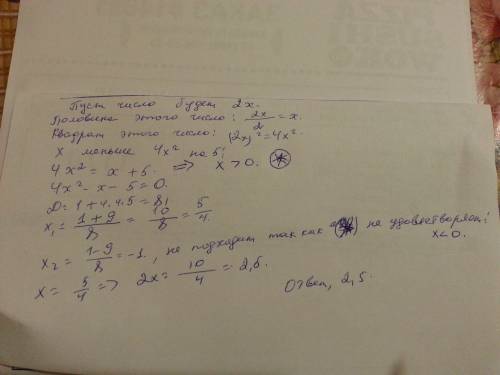 Пусть число будет 2x.
Половина этого числа: 2x/2 = x.
Квадрат этого числа: (2x)² = 4x².
X меньше 4x² на 5!
4x² = x + 5. => x > 0. (*)
4x² - x - 5 = 0.
D = 1 + 4·4·5 = 81
x₁ = (1+9)/8 = 10/8 = 5/4.
x₂ = (1-9)/8 = -1, не подходит так как (*) не удовлетворяет! x<0.
x = 5/4 => 2x = 10/4 = 2,5.
Ответ, 2,5.